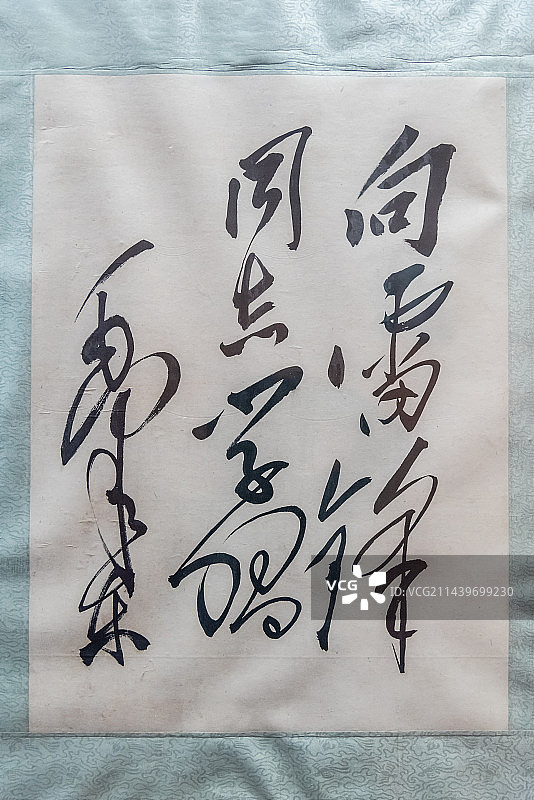 向雷锋
同志学習
毛泽东
VCG
ID:VCG211439699230